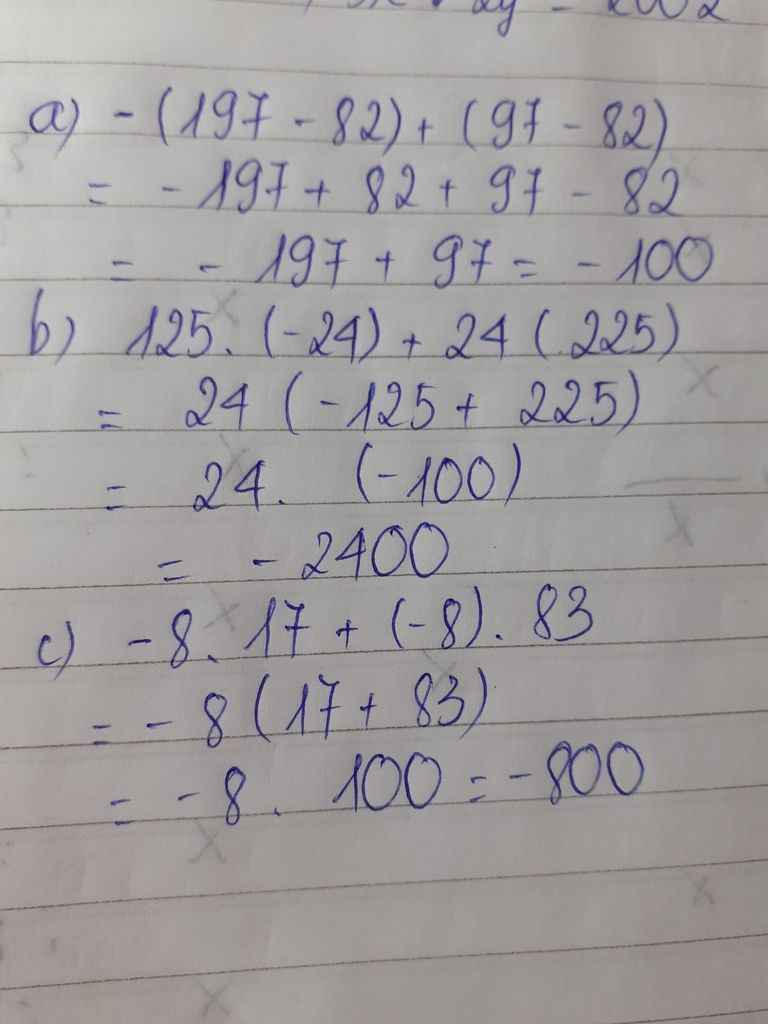 a) - (197 - 82) + (97 - 82)
= - 197 + 82 + 97 - 82
= - 197 + 97 = - 100
b) 125. (-24) + 24 (.225)
= 24 (-125 + 225)
= 24. (-100)
= - 2400
c) -8. 17 + (-8). 83
= - 8 (17 + 83)
= - 8. 100 = -800